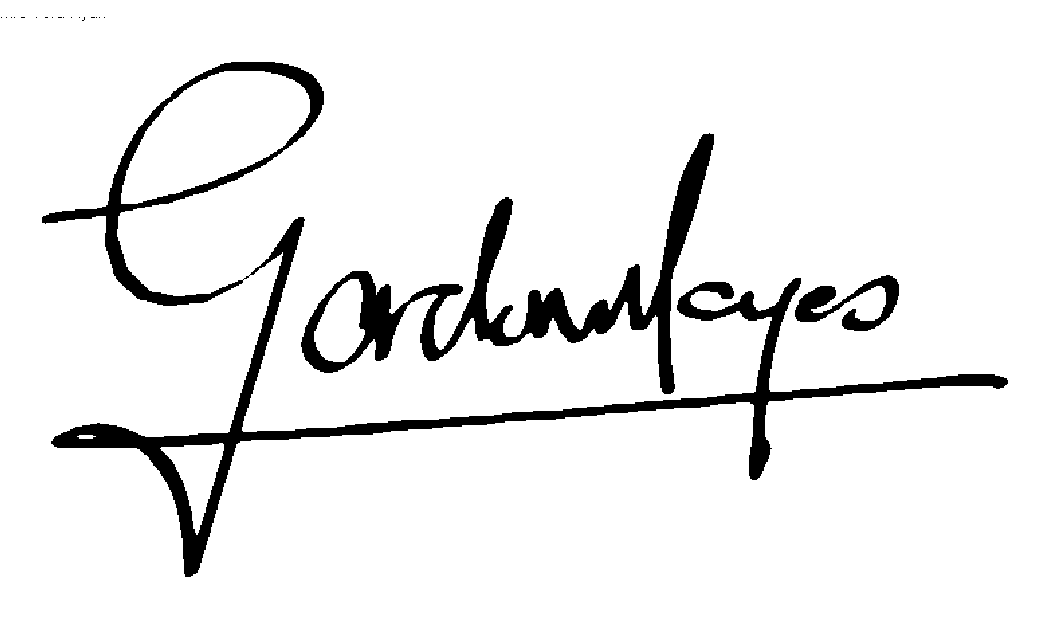 Gordon Mayes